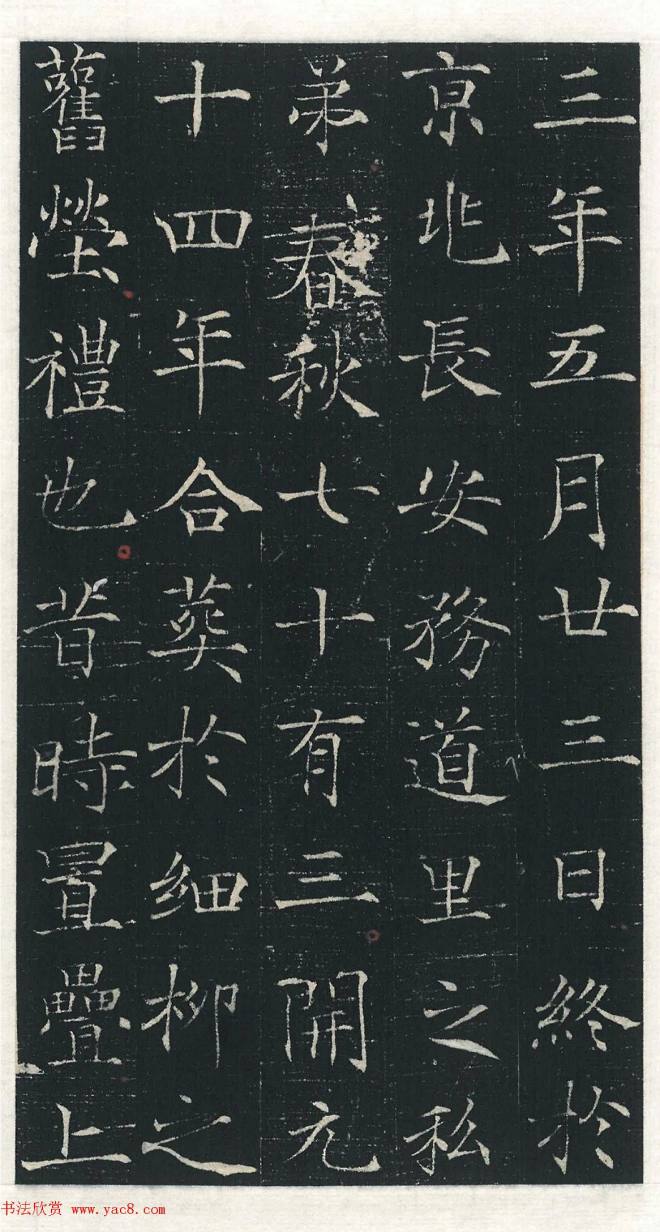 三年五月廿三日終於
京兆長安務道里之私
弟春秋七十有三開元
十四年合葬於細柳之
舊塋禮也昔時置疊上
书法欣赏 www.yac8.com